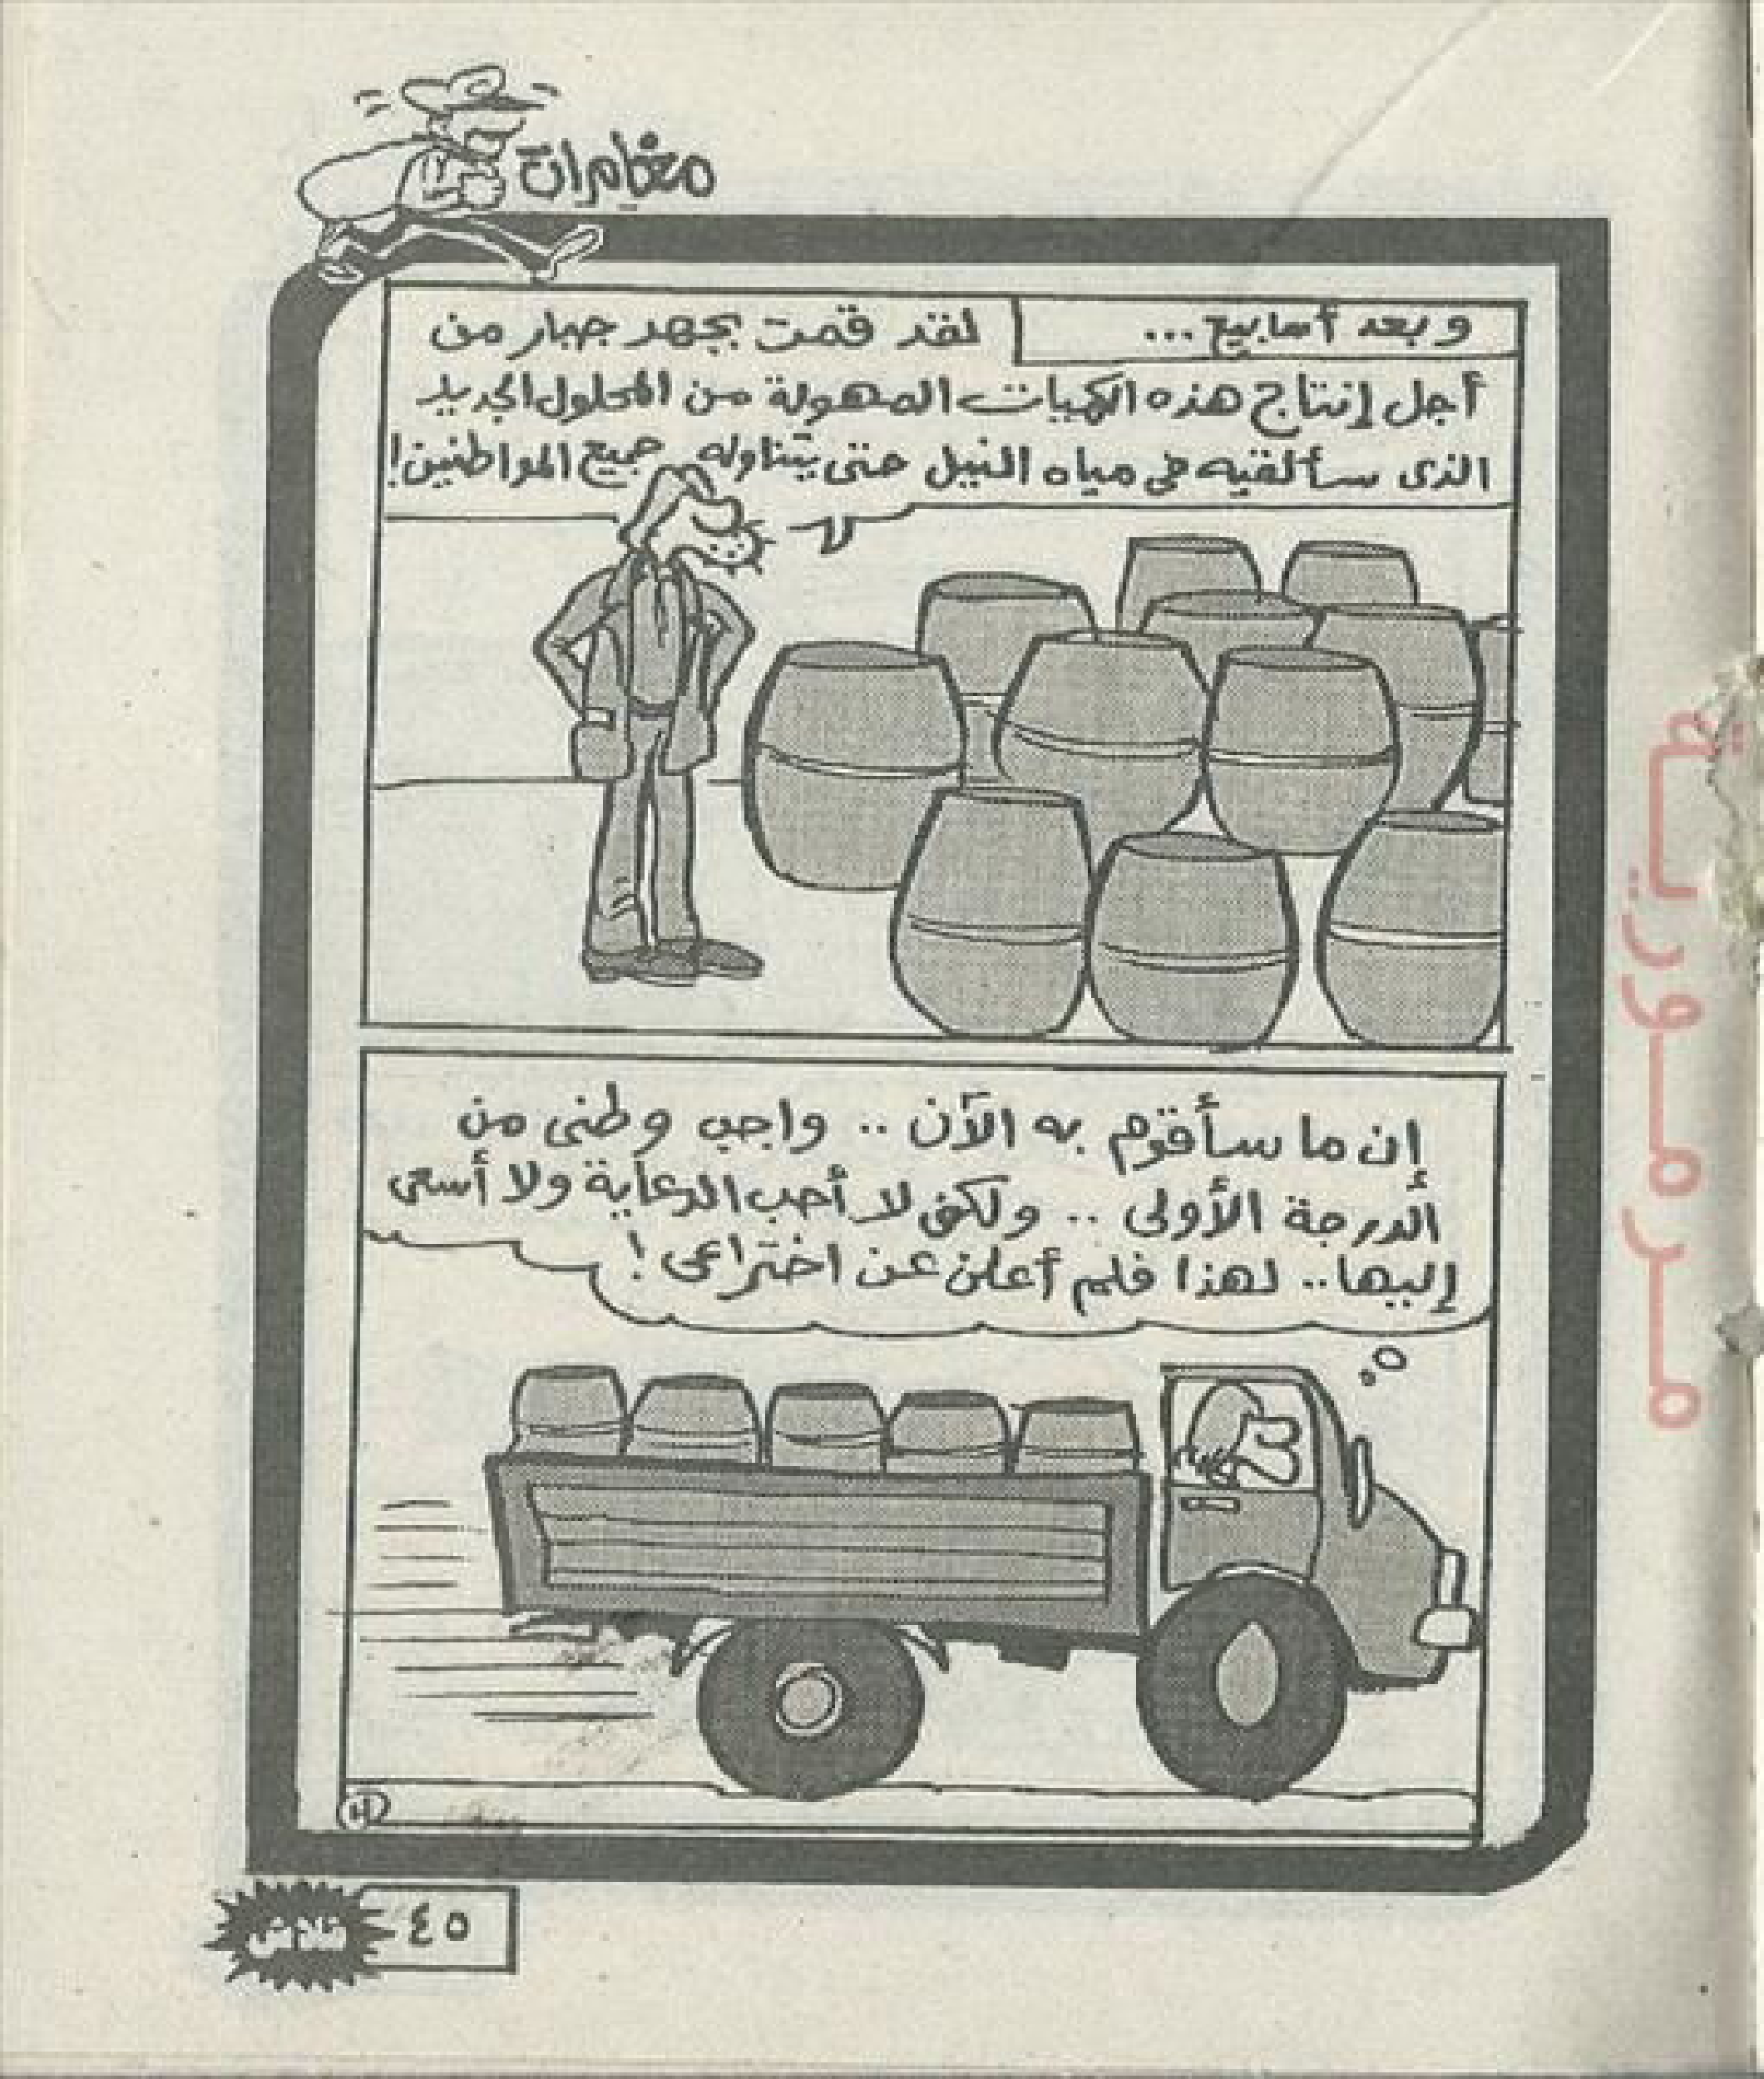 مغامرات
وبعد أسابيع...
لقد قمت بجهد جبار من
أجل إنتاج هذه الكميات المهولة من المحلول الجديد
الذى سألقيه فى مياه النيل حتى يتناوله جميع المواطنين!
إن ما سأقوم به الآن .. واجب وطنى من
الدرجة الأولى .. ولكنى لا أحب الدعاية ولا أسعى
إليها .. لهذا فلم أعلن عن اختراعى !
٤٥
فلاش
مرمورية